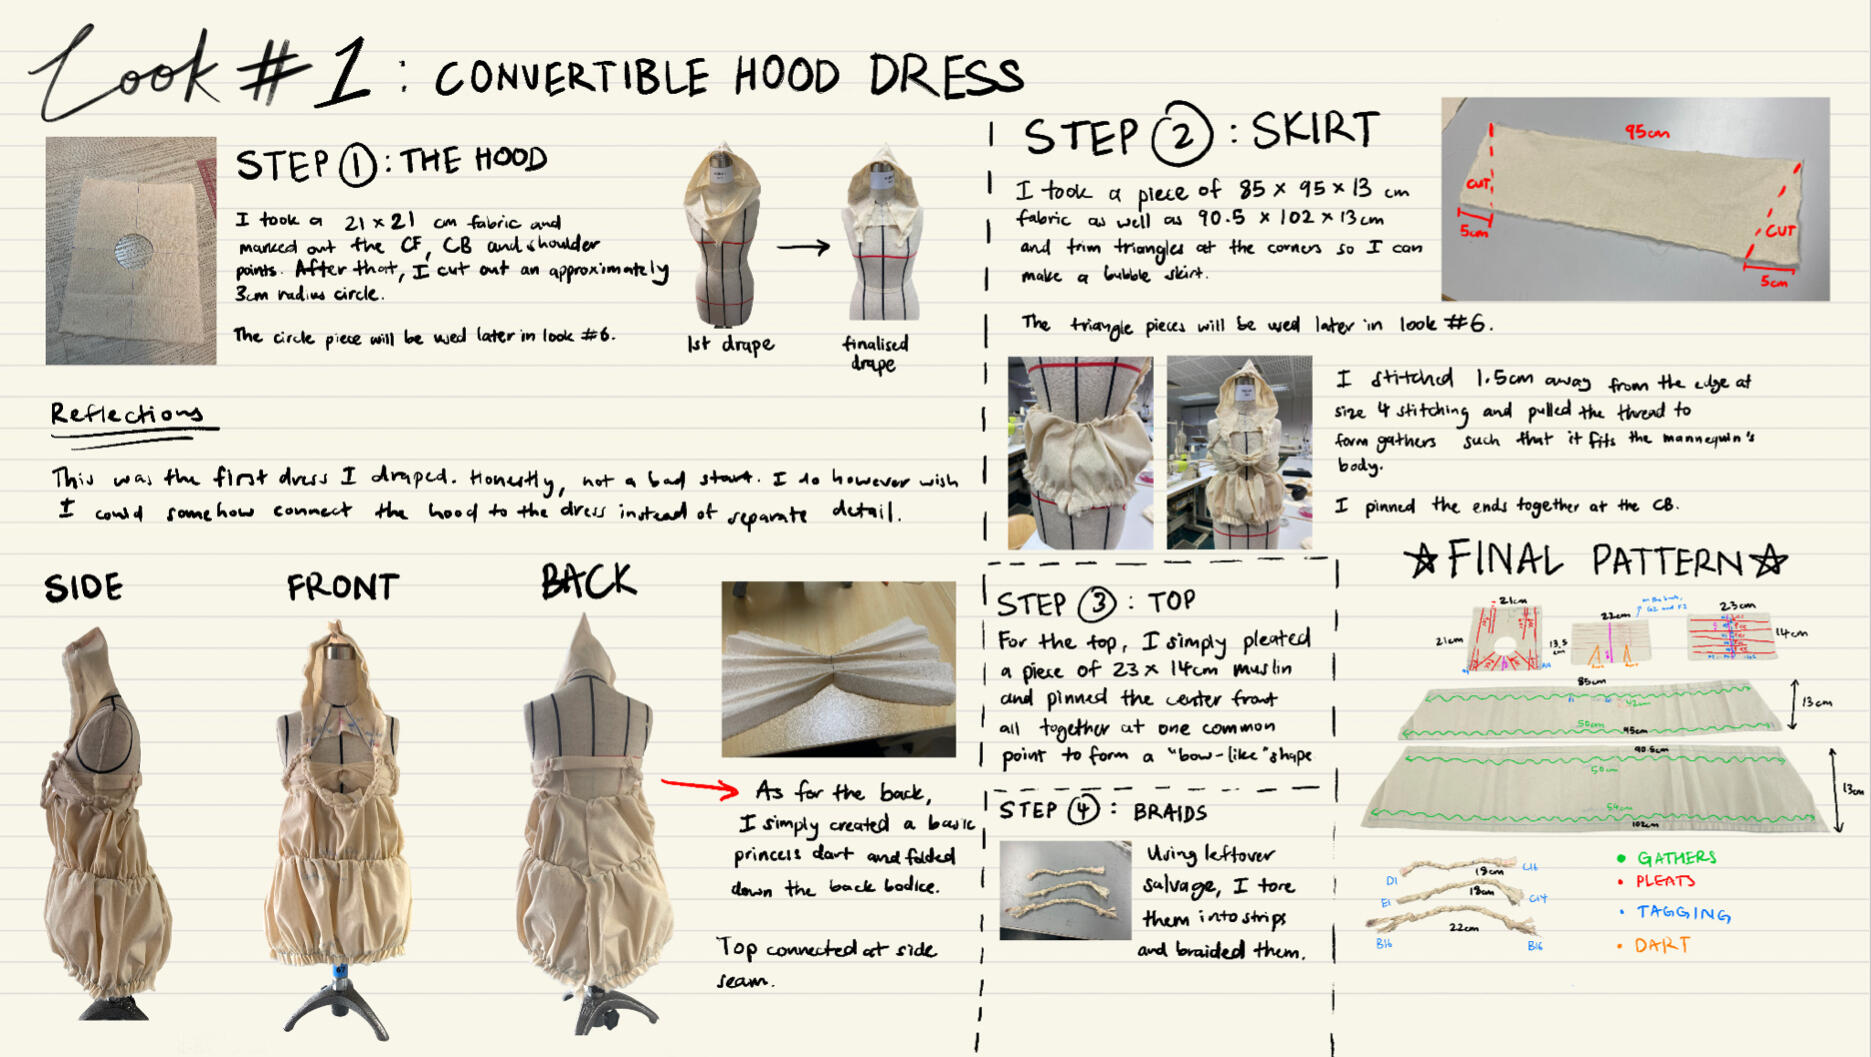 Look #1: CONVERTIBLE HOOD DRESS
STEP 1: THE HOOD
I took a 21 x 21 cm fabric and
marked out the CF, CB and shoulder
points. After that, I cut out an approximately
3cm radius circle.
The circle piece will be used later in look #6.
1st drape
finalised
drape
Reflections
This was the first dress I draped. Honestly, not a bad start. I do however wish
I could somehow connect the hood to the dress instead of separate detail.
SIDE
FRONT
BACK
67
As for the back,
I simply created a basic
princess dart and folded
down the back bodice.
Top connected at side
seam.
STEP 2: SKIRT
I took a piece of 85 x 95 x 13 cm
fabric as well as 90.5 x 102 x 13cm
and trim triangles at the corners so I can
make a bubble skirt.
The triangle pieces will be used later in look #6.
95cm
CUT
5cm
CUT
5cm
I stitched 1.5cm away from the edge at
size 4 stitching and pulled the thread to
form gathers such that it fits the mannequin's
body.
I pinned the ends together at the CB.
STEP 3: TOP
For the top, I simply pleated
a piece of 23 x 14cm muslin
and pinned the center front
all together at one common
point to form a "bow-like" shape
STEP 4: BRAIDS
Using leftover
salvage, I tore
them into strips
and braided them.
☆FINAL PATTERN☆
21cm
21cm
22cm
13.5
cm
23cm
14cm
85cm
42cm
50cm
95cm
13cm
90.5cm
50cm
54cm
102cm
13cm
D1
18cm
C16
E1
18cm
C14
B16
22cm
B16
• GATHERS
• PLEATS
• TAGGING
• DART